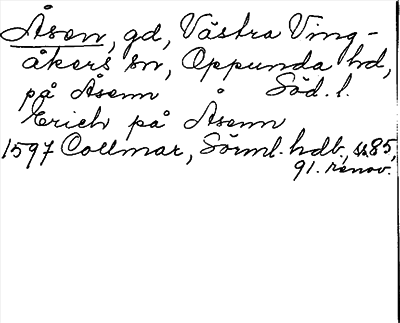 Åsen, gd, Västra Ving-
åkers sn, Oppunda hd,
på Åsenn Söd. l.
Erich på Åsenn
1597 Collmar, Sörml. hdb., ss 85,
91. renov.